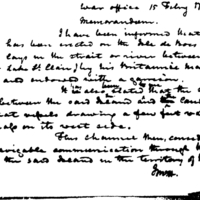 War office 15 Feby 17
Memorandum.
I have been informed that
has been erected on the Isle de Bois
lays in the strait or river between
Lake St Clair, by his Britannic Ma
and endowed with a garrison
It has also been stated that the c
between the said Island and the
that vessels drawing a few feet wa
also on its west side.
This channel then, consid
navigable communication through t
the said Island in the territory of t